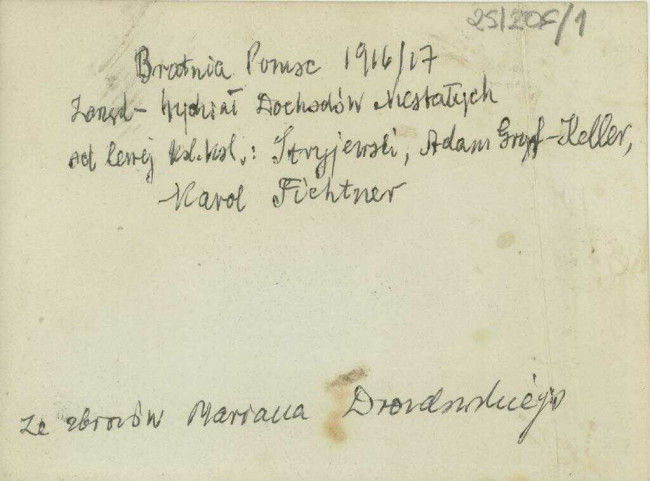 25/206/1
Bratnia Pomoc 1916/17
Zarząd - Wydział Dochodów Niestałych
od lewej kol. kol.: Stryjewski, Adam Gryf-Keller,
Karol Fichtner
Ze zbiorów Mariana Drozdowskiego